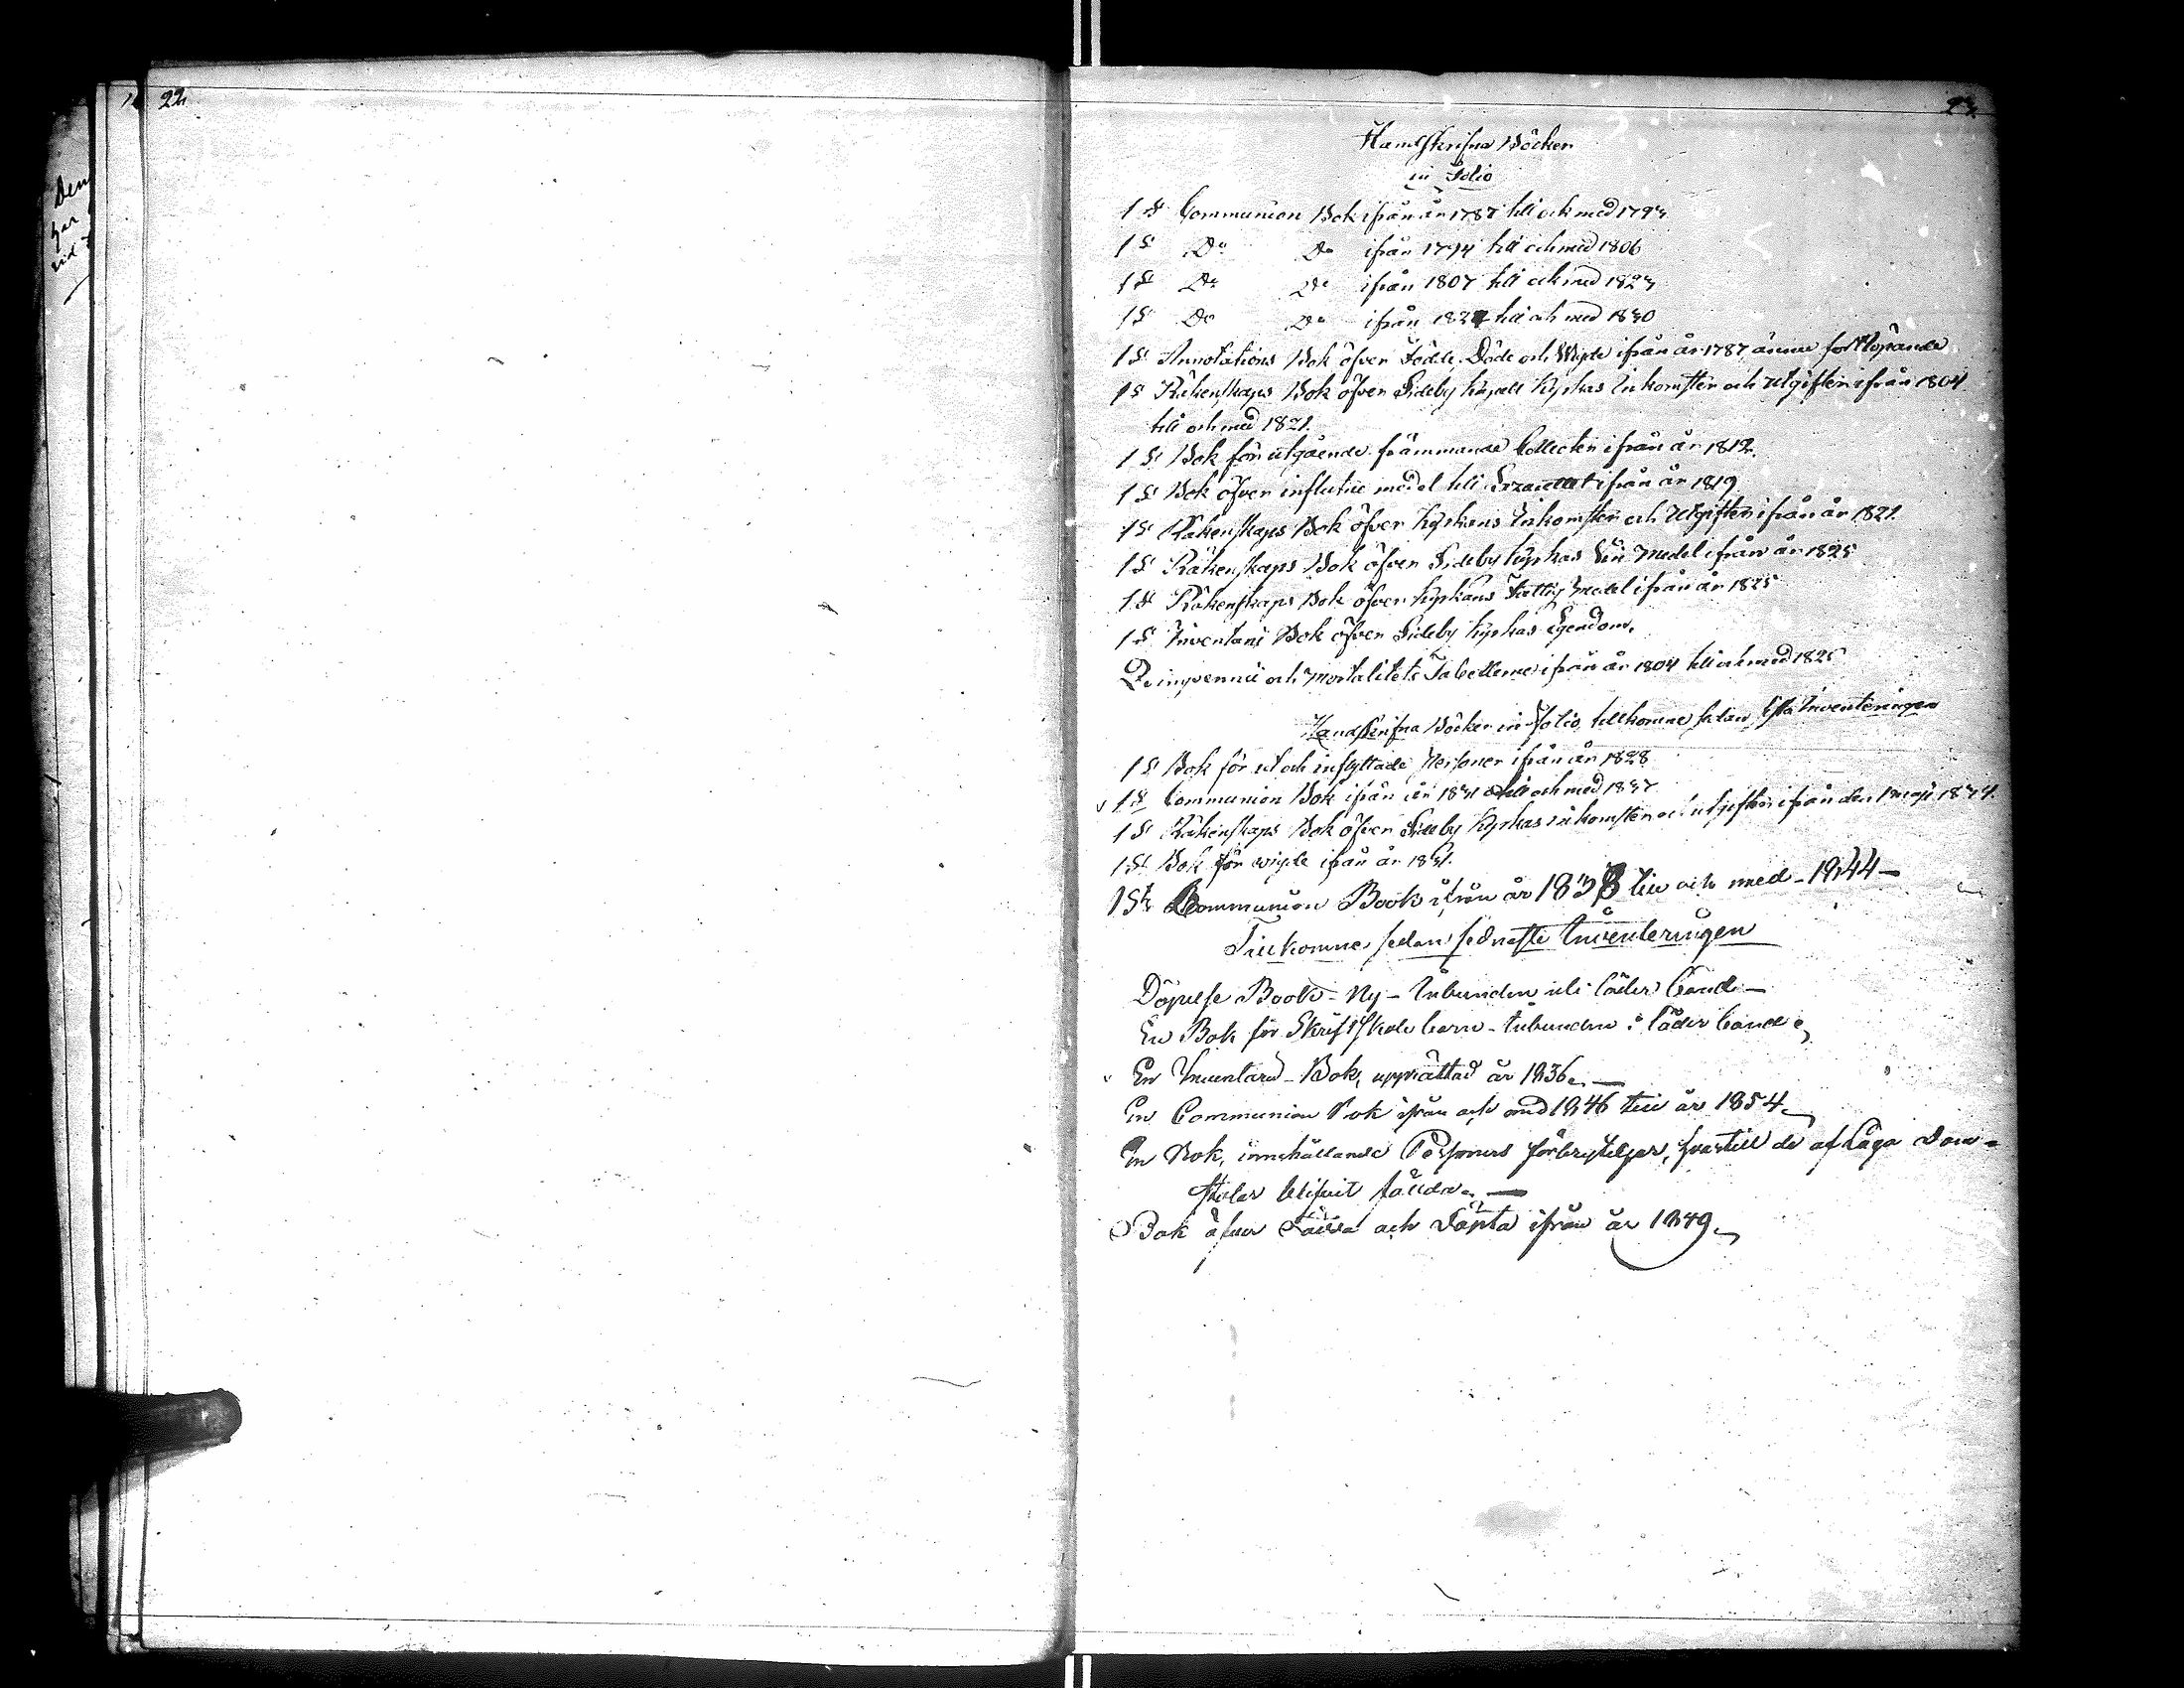 22.
23.
Handskrifna Böcker
in Folio
1 St Communion Bok ifrån år 1787 till och med 1793
1 St Do Do ifrån 1794 till och med 1806
1 St Do Do ifrån 1807 till och med 1823
1 St Do Do ifrån 1824 till och med 1830
1 St Annotations Bok öfver Födde, Döde och Wigde ifrån år 1787, ännu fortlöpande
1 St Räkenskaps Bok öfver Sideby Kapell Kyrkas Inkomster och Utgifter ifrån 1804
till och med 1821.
1 St Bok för utgående främmande Collecter ifrån år 1812.
1 St Bok öfver influtne medel till ifrån år 1819
1 St Räkenskaps Bok öfver Kyrkans Inkomster och Utgifter ifrån år 1821.
1 St Räkenskaps Bok öfver Sideby Kyrkas Vin Medel ifrån år 1825
1 St Räkenskaps Bok öfver Kyrkans Fattig Medel ifrån år 1825
1 St Inventarii Bok öfver Sideby Kyrkas Egendom.
Qvinqvennii och Mortalitets Tabellerne ifrån år 1804 till och med 1825
Handskrifna Böcker in Folio, tillkomne sedan Inventeringen
1 St Bok för ut och inflyttade Personer ifrån år 1828
1 St Communion Bok ifrån år 1831 till och med 1837
1 St Räkenskaps Bok öfver Sideby Kyrkas inkomster och utgifter ifrån den 1 maji 1834.
1 St Bok för wigde ifrån år 1831.
1 St Communion Book ifrån år 1838 till och med - 1844 -
Tillkomne sedan sednaste Inventeringen
Döpelse Book - Ny - Inbunden uti läder band -
En Bok för Skriftskole barn - inbunden i läder band.
En Inventarii - Bok, upprättad år 1836. -
En Communion Bok ifrån och med 1846 till år 1854.
En Bok, innehållande Personers förbrytelser, hvartill de af Låga Dom=
stolar blifvit fällda. -
Bok öfver Födda och Döpta ifrån år 1849.